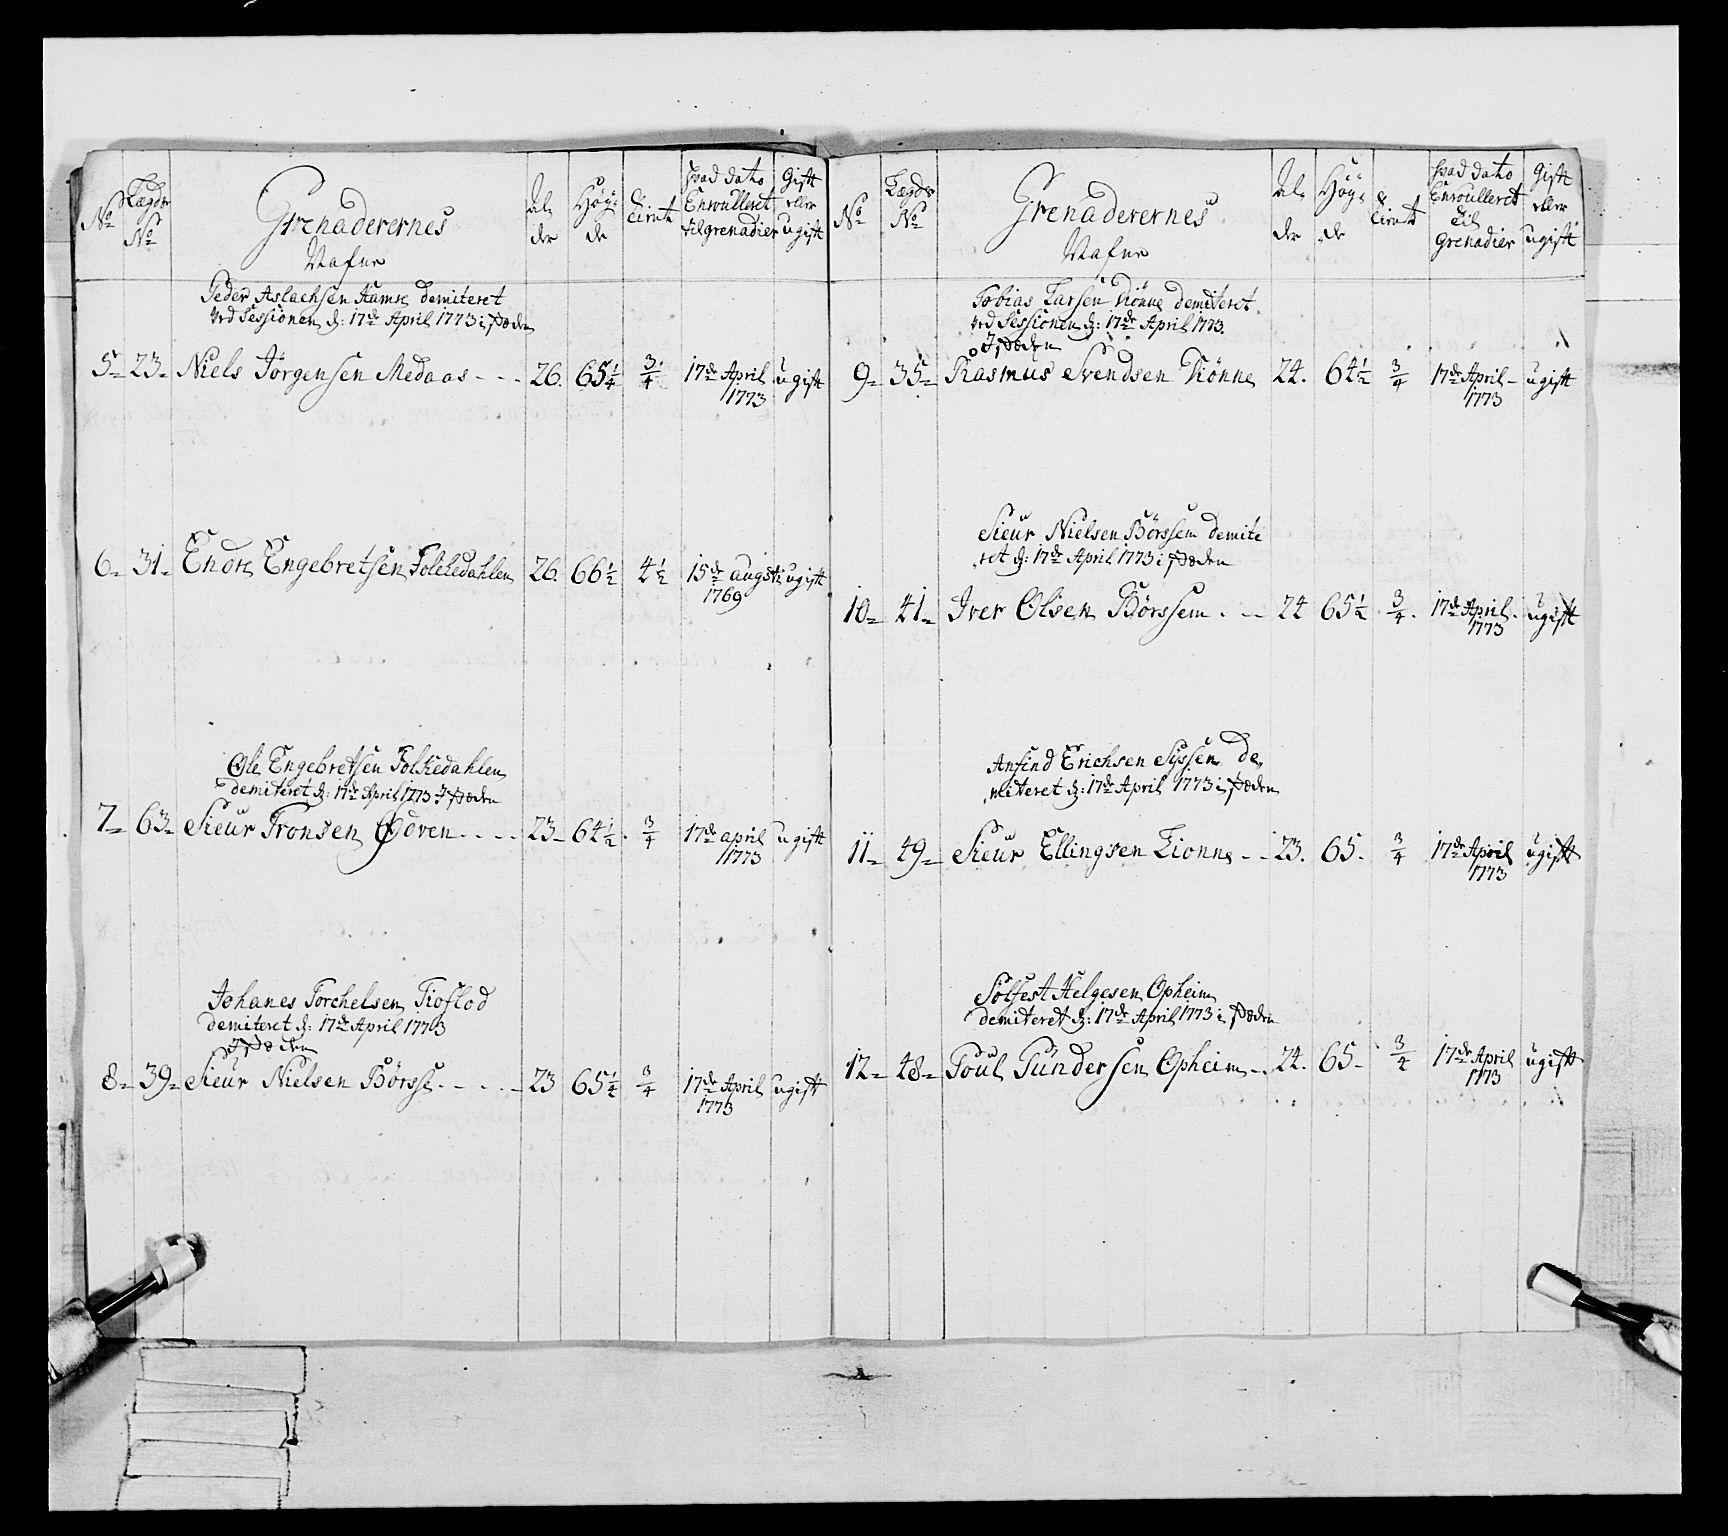 No
Lægds No
Grenaderernes Nafne
Al der
Høy de
Tienst
Hvad dato Enroulleret til grenadier
Gift eller ugift
Peder Aslachsen Hamre demiteret
ved Sessionen d: 17de April 1773 i Stæden
5 23 Niels Jörgensen Medaas 26. 65 1/4 3/4 17de April 1773 ugift
6 31 Endre Engebretsen Folkedahlen 26. 66 1/2 4 1/2 15de augsti 1769 ugift
Ole Engebretsen Folkedahlen
demiteret d: 17de April 1773 I Stæden
7 63 Sieur Tronsen Ødven 23 64 1/2 3/4 17de april 1773 ugift
Johanes Torchelsen Tioflod
demiteret d: 17de April 1773
I Stæden
8 39 Sieur Nielsen Börsse 23 65 1/4 3/4 17de April 1773 ugift
No
Lægds No
Grenaderernes Nafne
Al der
Høy de
Tienst
Hvad dato Enroulleret til Grenadier
Gift eller ugift
Tobias Larsen Nönne demiteret
ved Sessionen d: 17de April 1773.
I Stæden
9 35 Rasmus Svendsen Nönne 24. 64 1/2 3/4 17de April 1773 ugift
Sieur Nielsen Börssem demite
ret d: 17de April 1773 i Stæden
10 41 Iver Olsen Börssem 24 65 1/2 3/4 17de April 1773 ugift
Anfind Erichsen Syssen de
miteret d: 17de April 1773 i Stæden
11 49 Sieur Ellingsen Lionne 23. 65. 3/4 17de April 1773 ugift
Solfest Helgesen Opheim
demiteret d: 17de April 1773 i Stæden
12 48 Poul Gundersen Opheim 24. 65 3/4 17de April 1773 ugift